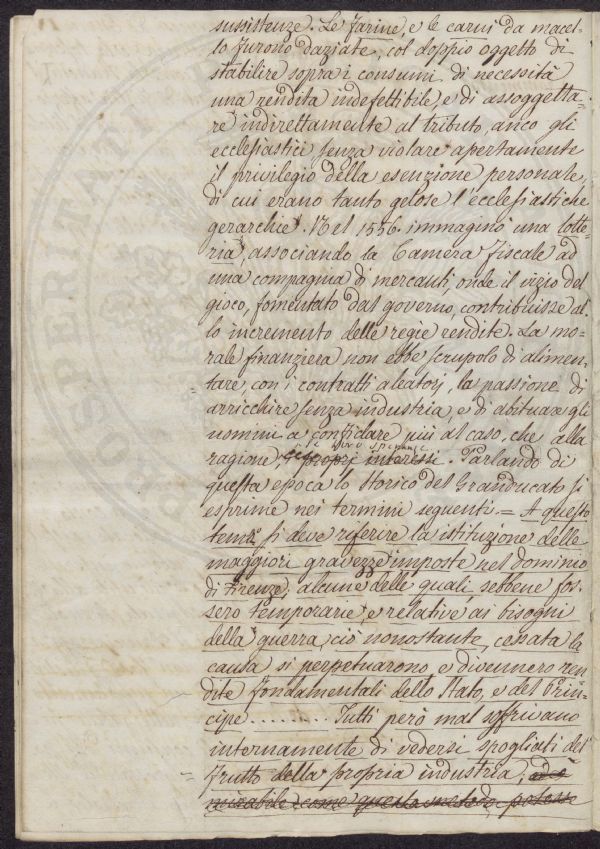 sussistenze. Le farine, e le carni da macel-
lo furono daziate, col doppio oggetto di
stabilire sopra i consumi di necessità
una rendita indefettibile, e di assoggetta-
re indirettamente al tributo, anco gli
ecclesiastici senza violare apertamente
il privilegio della esenzione personale,
di cui erano tanto gelose l'ecclesiastiche
gerarchie. Nel 1556. immaginò una lotte-
ria, associando la Camera fiscale ad
una compagnia di mercanti, onde il vizio del
gioco, fomentato dal governo, contribuisse al-
lo incremento delle regie rendite. La mo-
rale finanziera non ebbe scrupolo di alimen-
tare, con i contratti aleatorj, la passione di
arricchire senza industria, e di abituare gli
uomini a confidare più al caso, che alla
ragione, propri interessi. Parlando di
questa epoca lo Storico del Granducato si
esprime nei termini seguenti = A questo
tempo si deve riferire la istituzione delle
maggiori gravezze imposte nel dominio
di Firenze; alcune delle quali, sebbene fos-
sero temporarie, e relative ai bisogni
della guerra, ciò nonostante, cessata la
causa si perpetuarono e divennero ren-
dite fondamentali dello Stato, e del Prin-
cipe ......... Tutti però mal soffrivano
internamente di vedersi spogliati del
frutto della propria industria,
come questo metodo potesse
PROSPERITATI